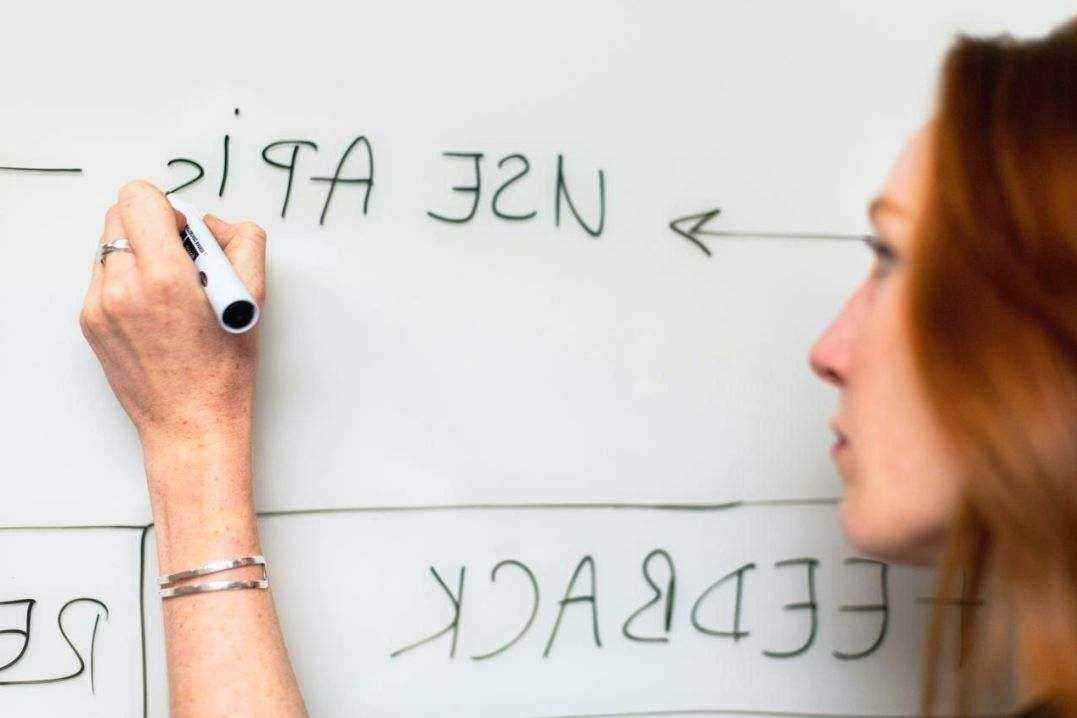 USE APis
FEEDBACK
RE